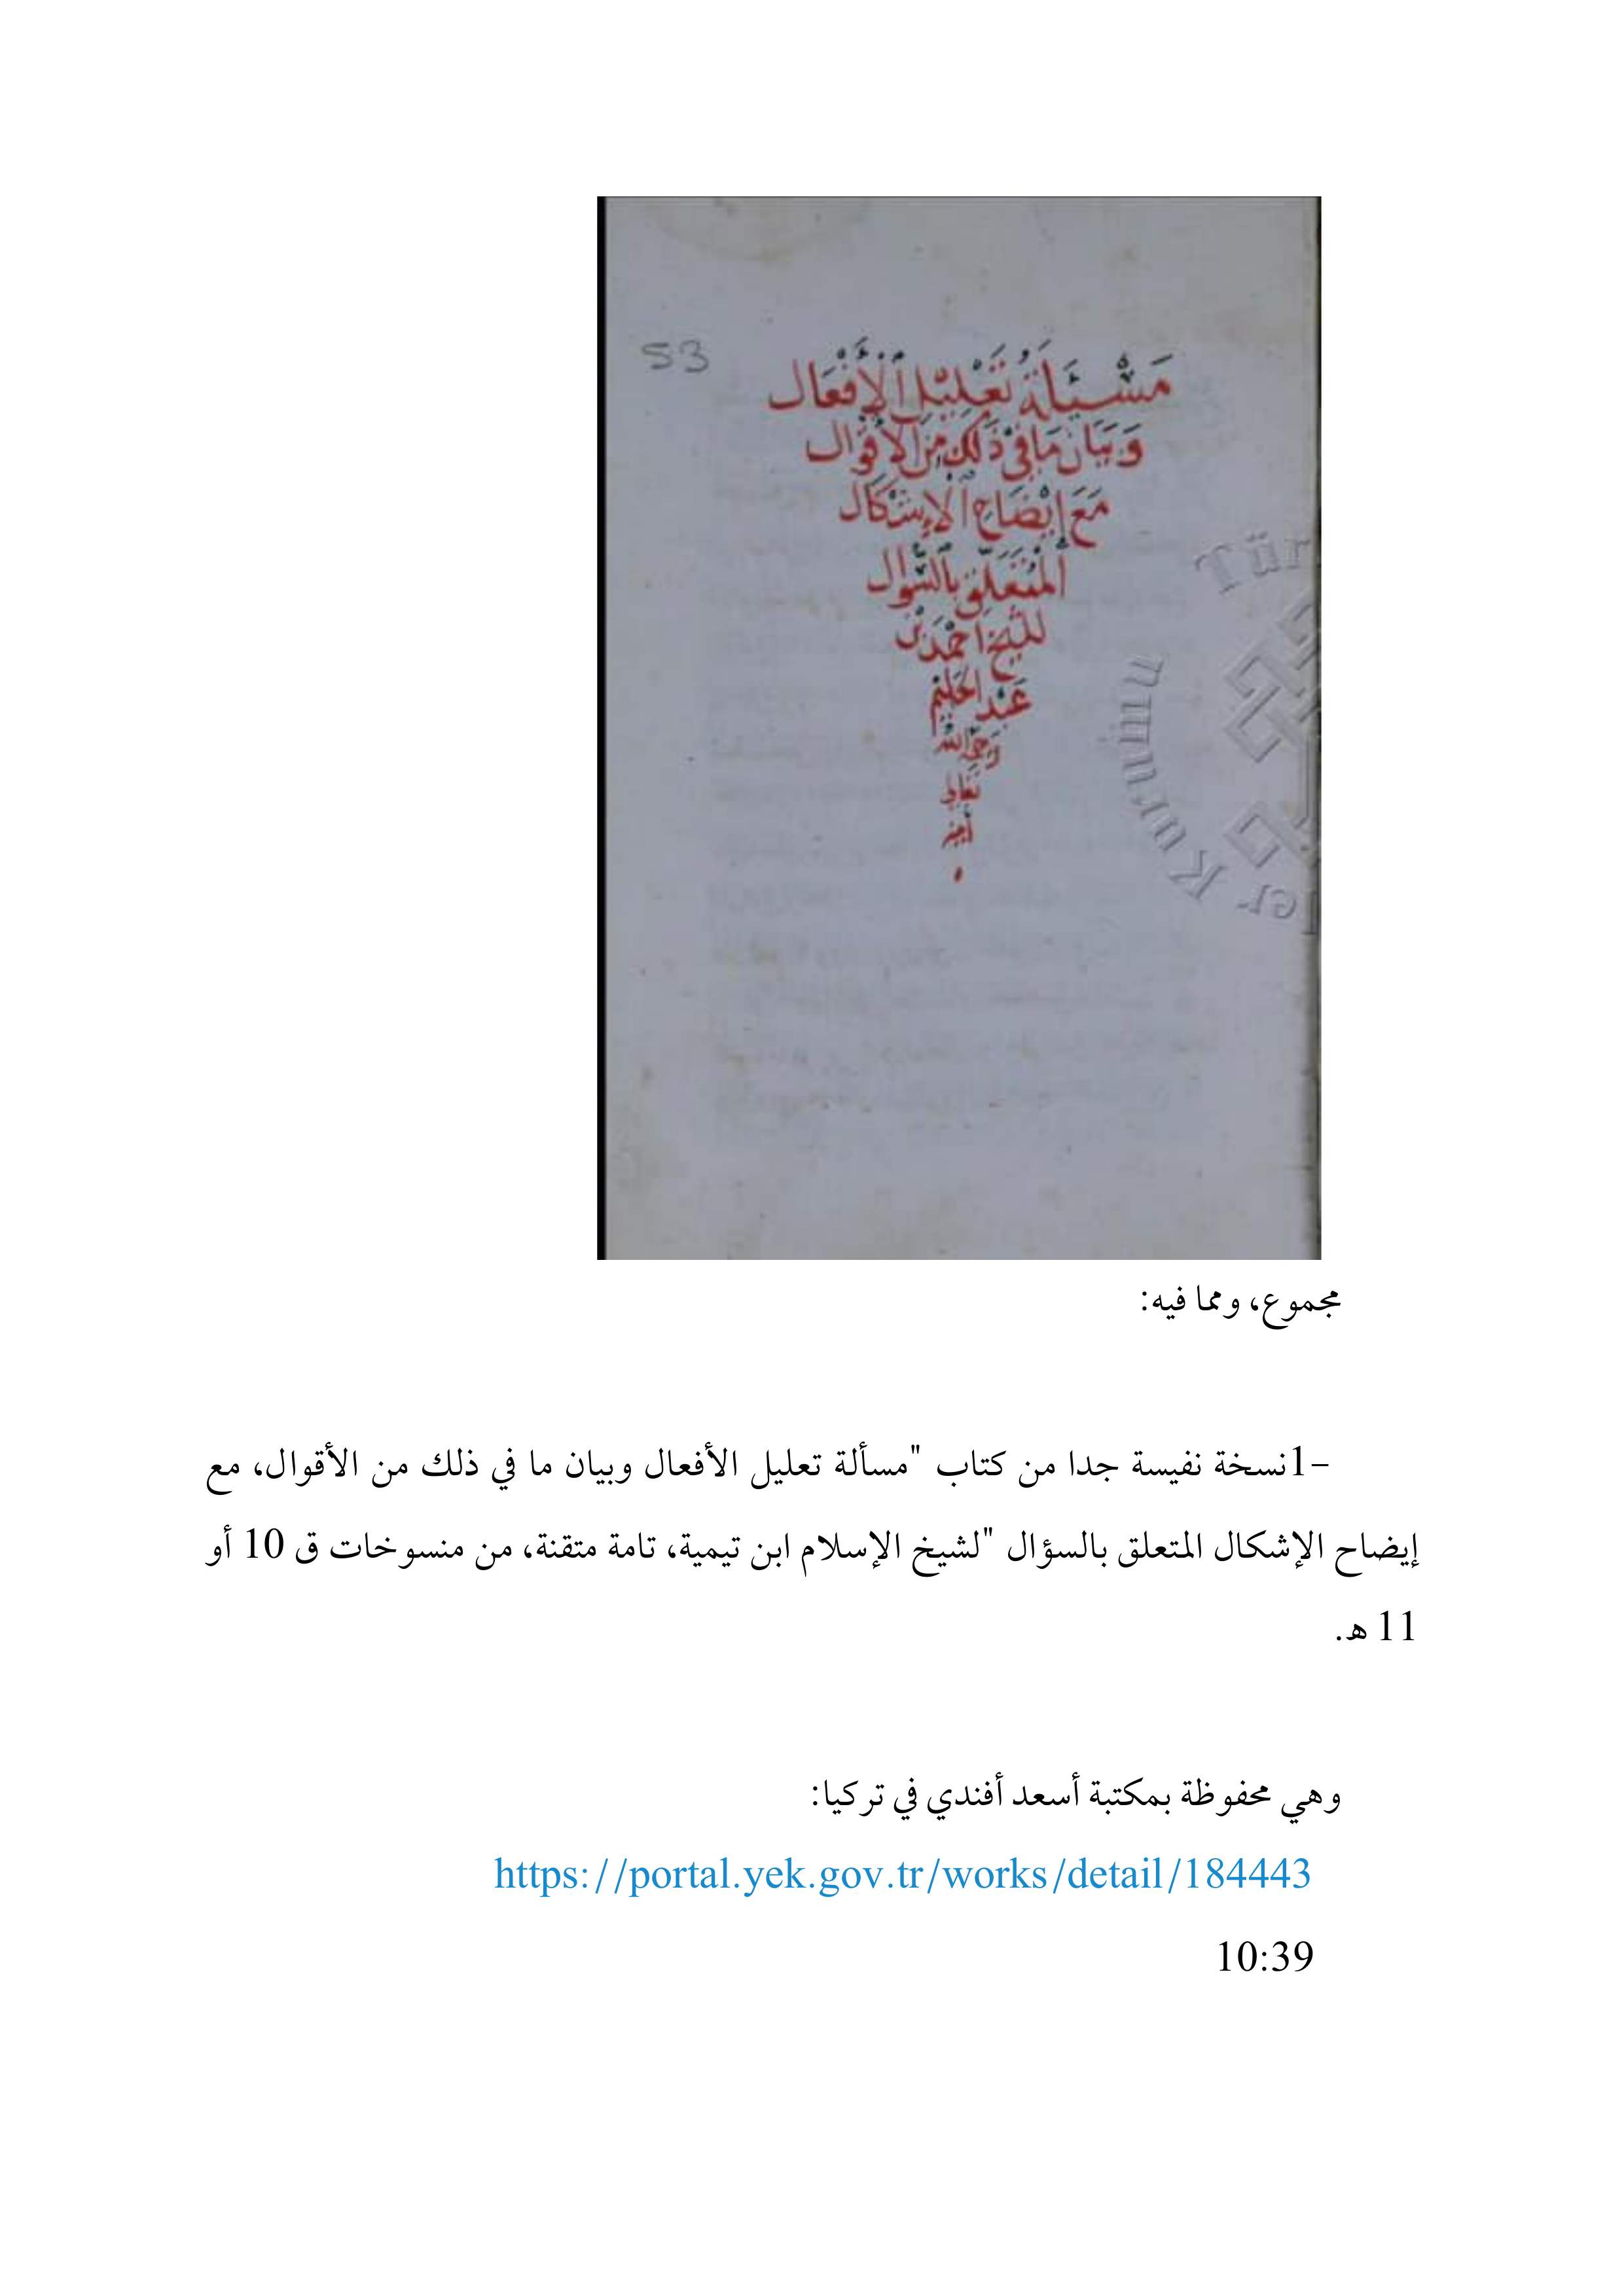 53
مَسْئَلَةُ تَعْلِيْلِ الْأَفْعَال
وَبَيَان مَا فِي ذَلِكَ مِنَ الْأَقْوَال
مَعَ اِيْضَاحِ الْاِشْكَال
الْمُتَعَلِّقِ بِالسُّؤَال
للشيخ احْمَدَ بْن
عَبْد الحَلِيْم
رَحِمَهُ الله
تَعَالى
آمين
Tür
ler Kurumu
مجموع، ومما فيه:
-1نسخة نفيسة جدا من كتاب "مسألة تعليل الأفعال وبيان ما في ذلك من الأقوال، مع
إيضاح الإشكال المتعلق بالسؤال "لشيخ الإسلام ابن تيمية، تامة متقنة، من منسوخات ق 10 أو
11 ه.
وهي محفوظة بمكتبة أسعد أفندي في تركيا:
https://portal.yek.gov.tr/works/detail/184443
10:39